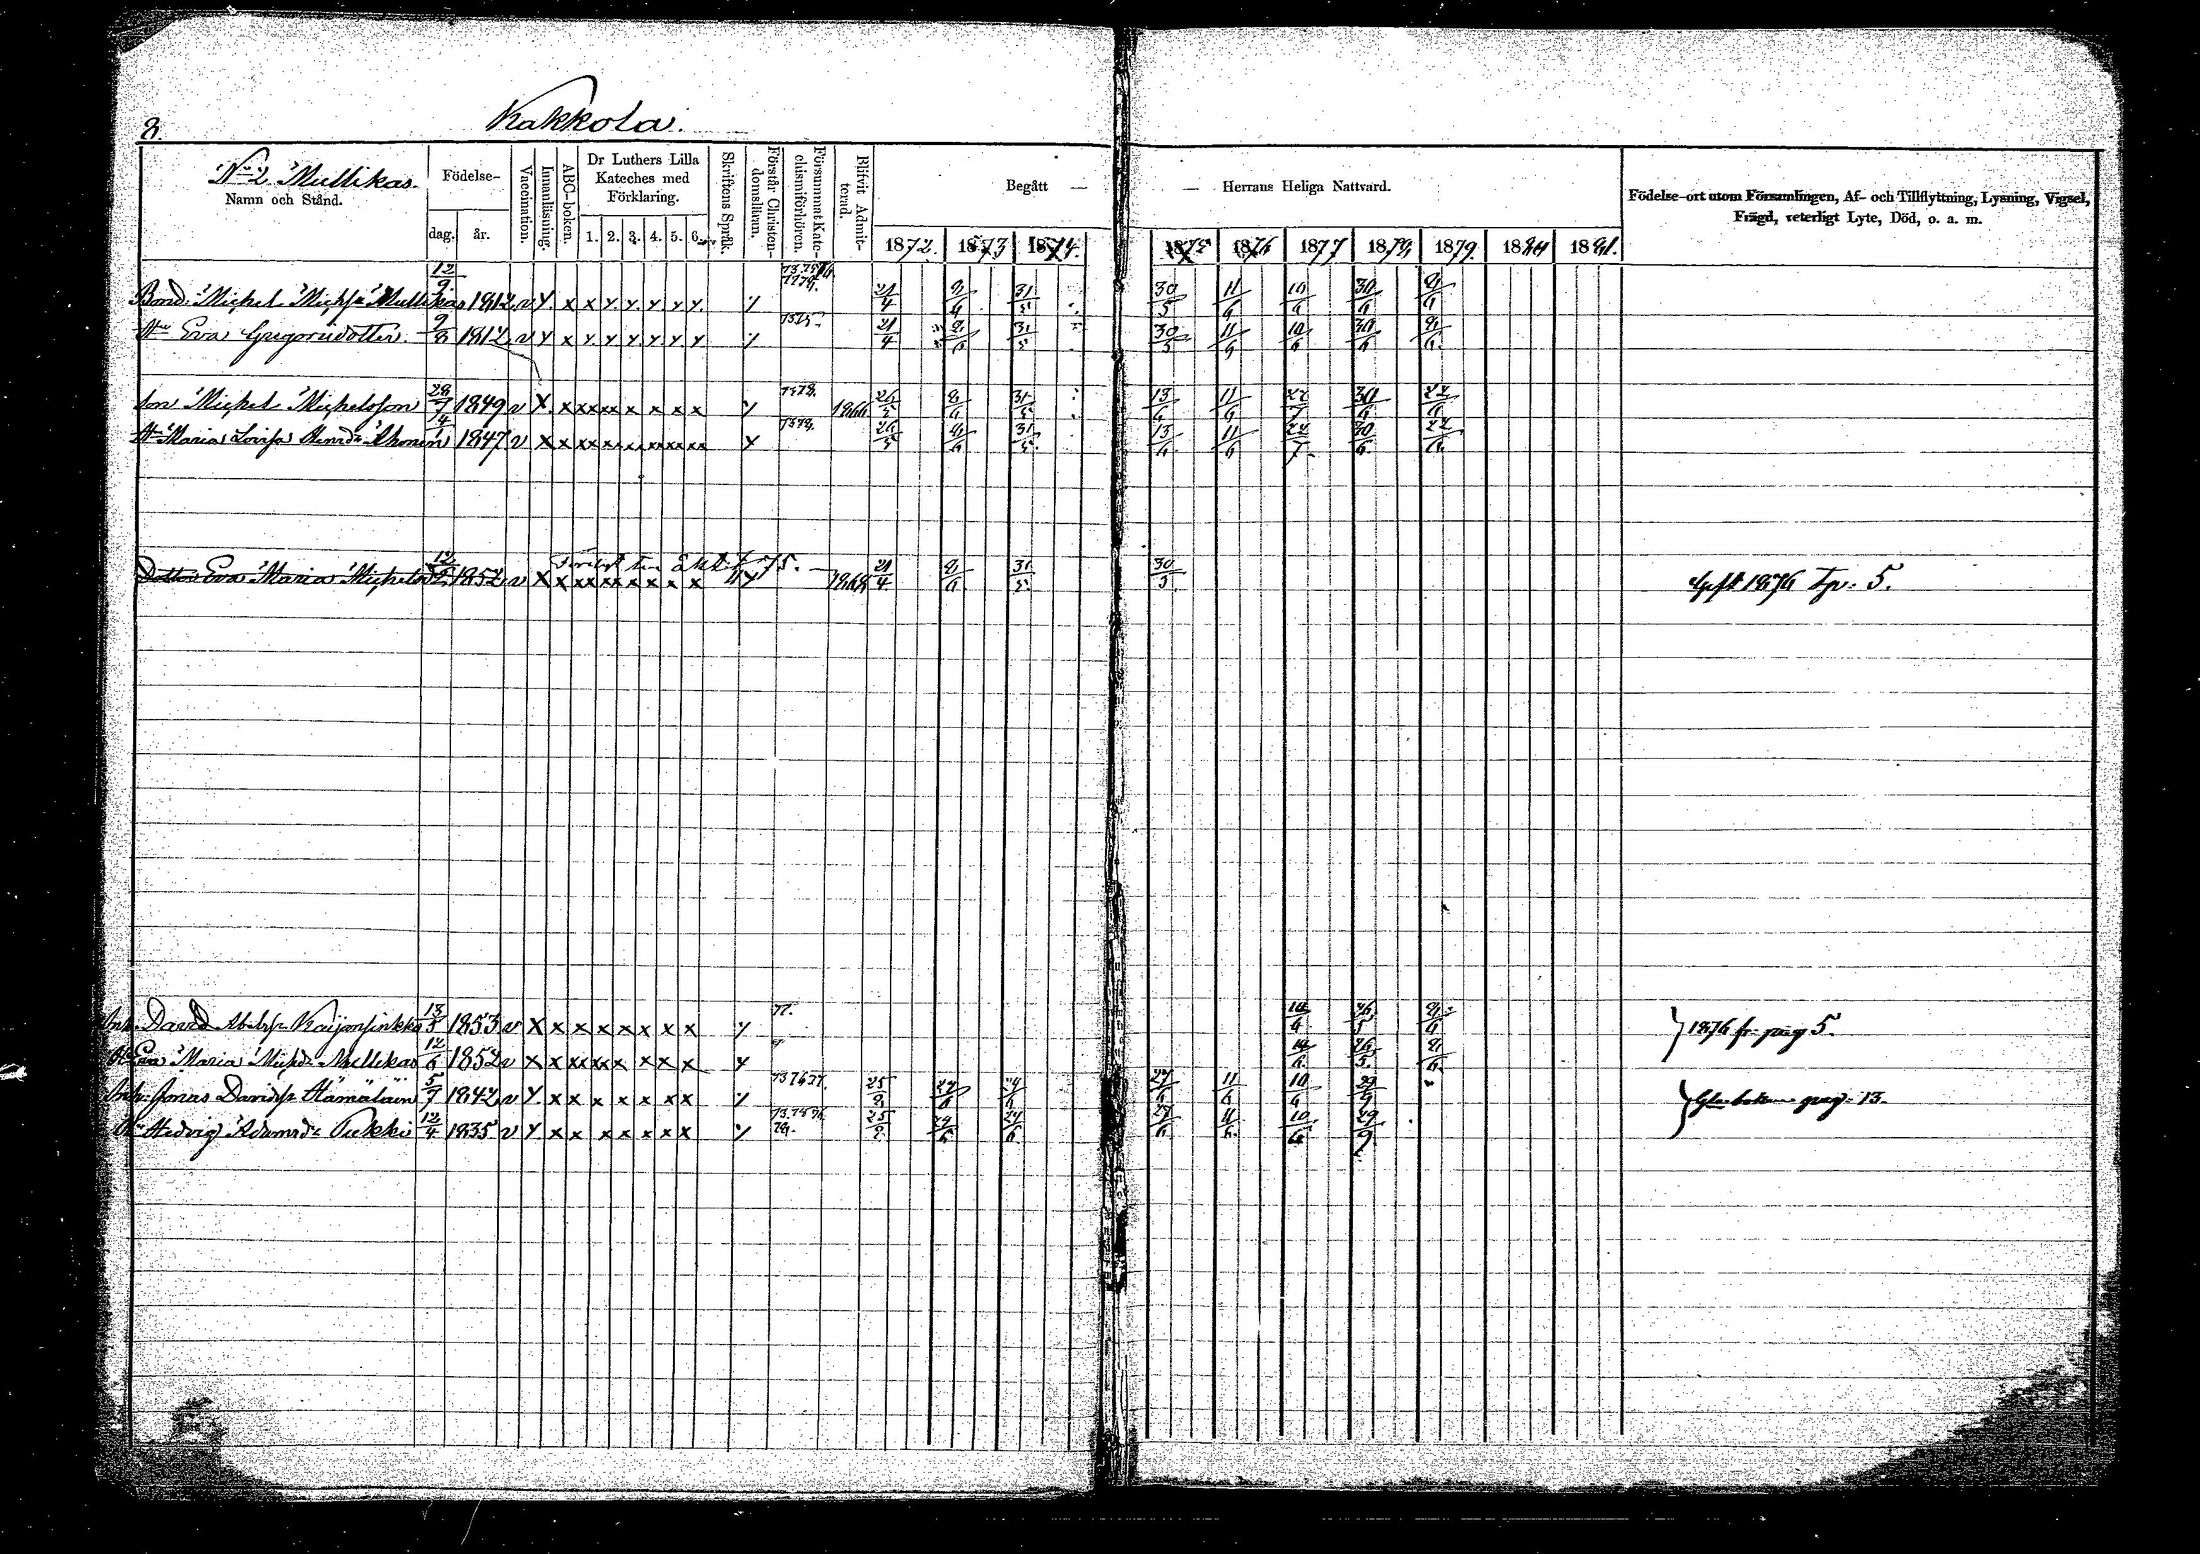 8.
Kakkola.
No 2 Mullikas.
Namn och Stånd.
Födelse-
dag. år.
Vaccination.
Innanläsning.
ABC-boken.
Dr Luthers Lilla Kateches med Förklaring.
1. 2. 3. 4. 5. 6.
Skriftens Språk.
Förstår Christendomsläran.
Försummat Katechismiförhören.
Blifvit Admitterad.
Begått — — Herrans Heliga Nattvard.
1872. 1873 1874. 1875 1876 1877 1878 1879. 1880 1881.
Födelse-ort utom Församlingen, Af- och Tillflyttning, Lysning, Vigsel, Frägd, veterligt Lyte, Död, o. a. m.
Bond. Michel Michs Mullikas 12/9 1812 v Y x x y y y y y y 21/4 8/6 31/5 30/5 11/6 10/6 30/6 8/6
Hu Eva Gregorii dotter 9/8 1812 v Y x y y y y y y y 1875 21/4 8/6 31/5 30/5 11/6 10/6 30/6 8/6
Son Michel Michelsson 28/7 1849 v X x xx xx x x x x y 1878. 1866 26/5 8/6 31/5 13/6 11/6 22/7 30/6 22/6
Hu Maria Lovisa Henrdr Ahonen 4/1 1847 v x x y 1878. 26/5 8/6 31/5 13/6 11/6 22/7 30/6 22/6
Dotter Eva Maria Michelsdr 12/6 1852 v X x xx xx x x x x y 1868 21/4 8/6 31/5 30/5 1876 Tp. 5.
Inh. David Abelsp. Kaijansinkko 13/5 1853 v X x x x x x x x y 77. 10/6 26/5 8/6 } 1876 fr. pag 5.
Hu Eva Maria Michdr Mullikas 12/6 1852 v x x xx xx x x x x y 26/5 8/6
Inh. Jonas Davidsp. Hämäläin 5/7 1842 v Y x x x x x x x y 73 76 77. 25/2 24/6 24/6 27/6 11/6 10/6 29/9 } pag. 13.
Hu Hedvig Adamsdr Pukki 12/4 1835 v Y x x x x x x x y 25/2 24/6 24/6 27/6 11/6 10/6 29/9